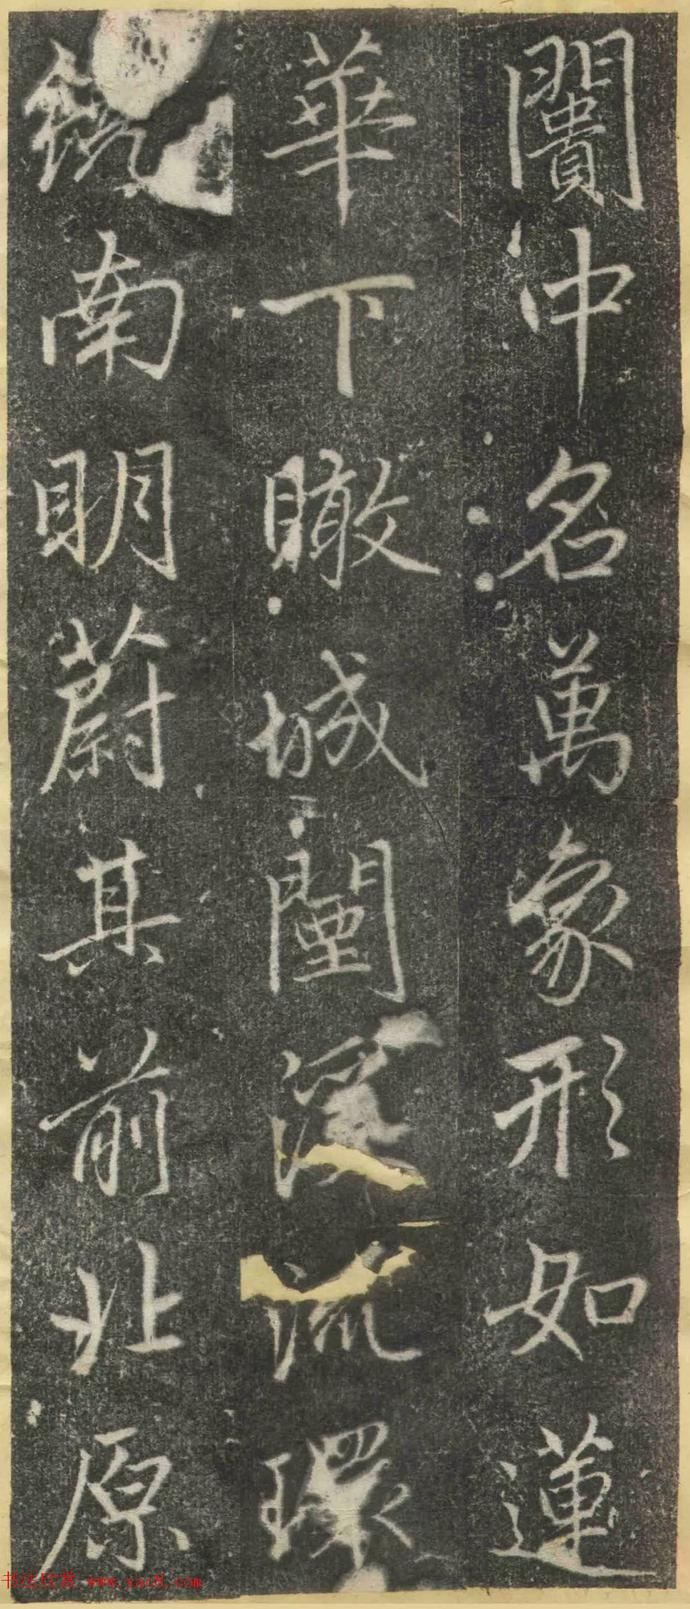 闠中名萬象形如蓮
華下瞰城闉流環
南明蔚其前北原
书法欣赏 www.yac8.com